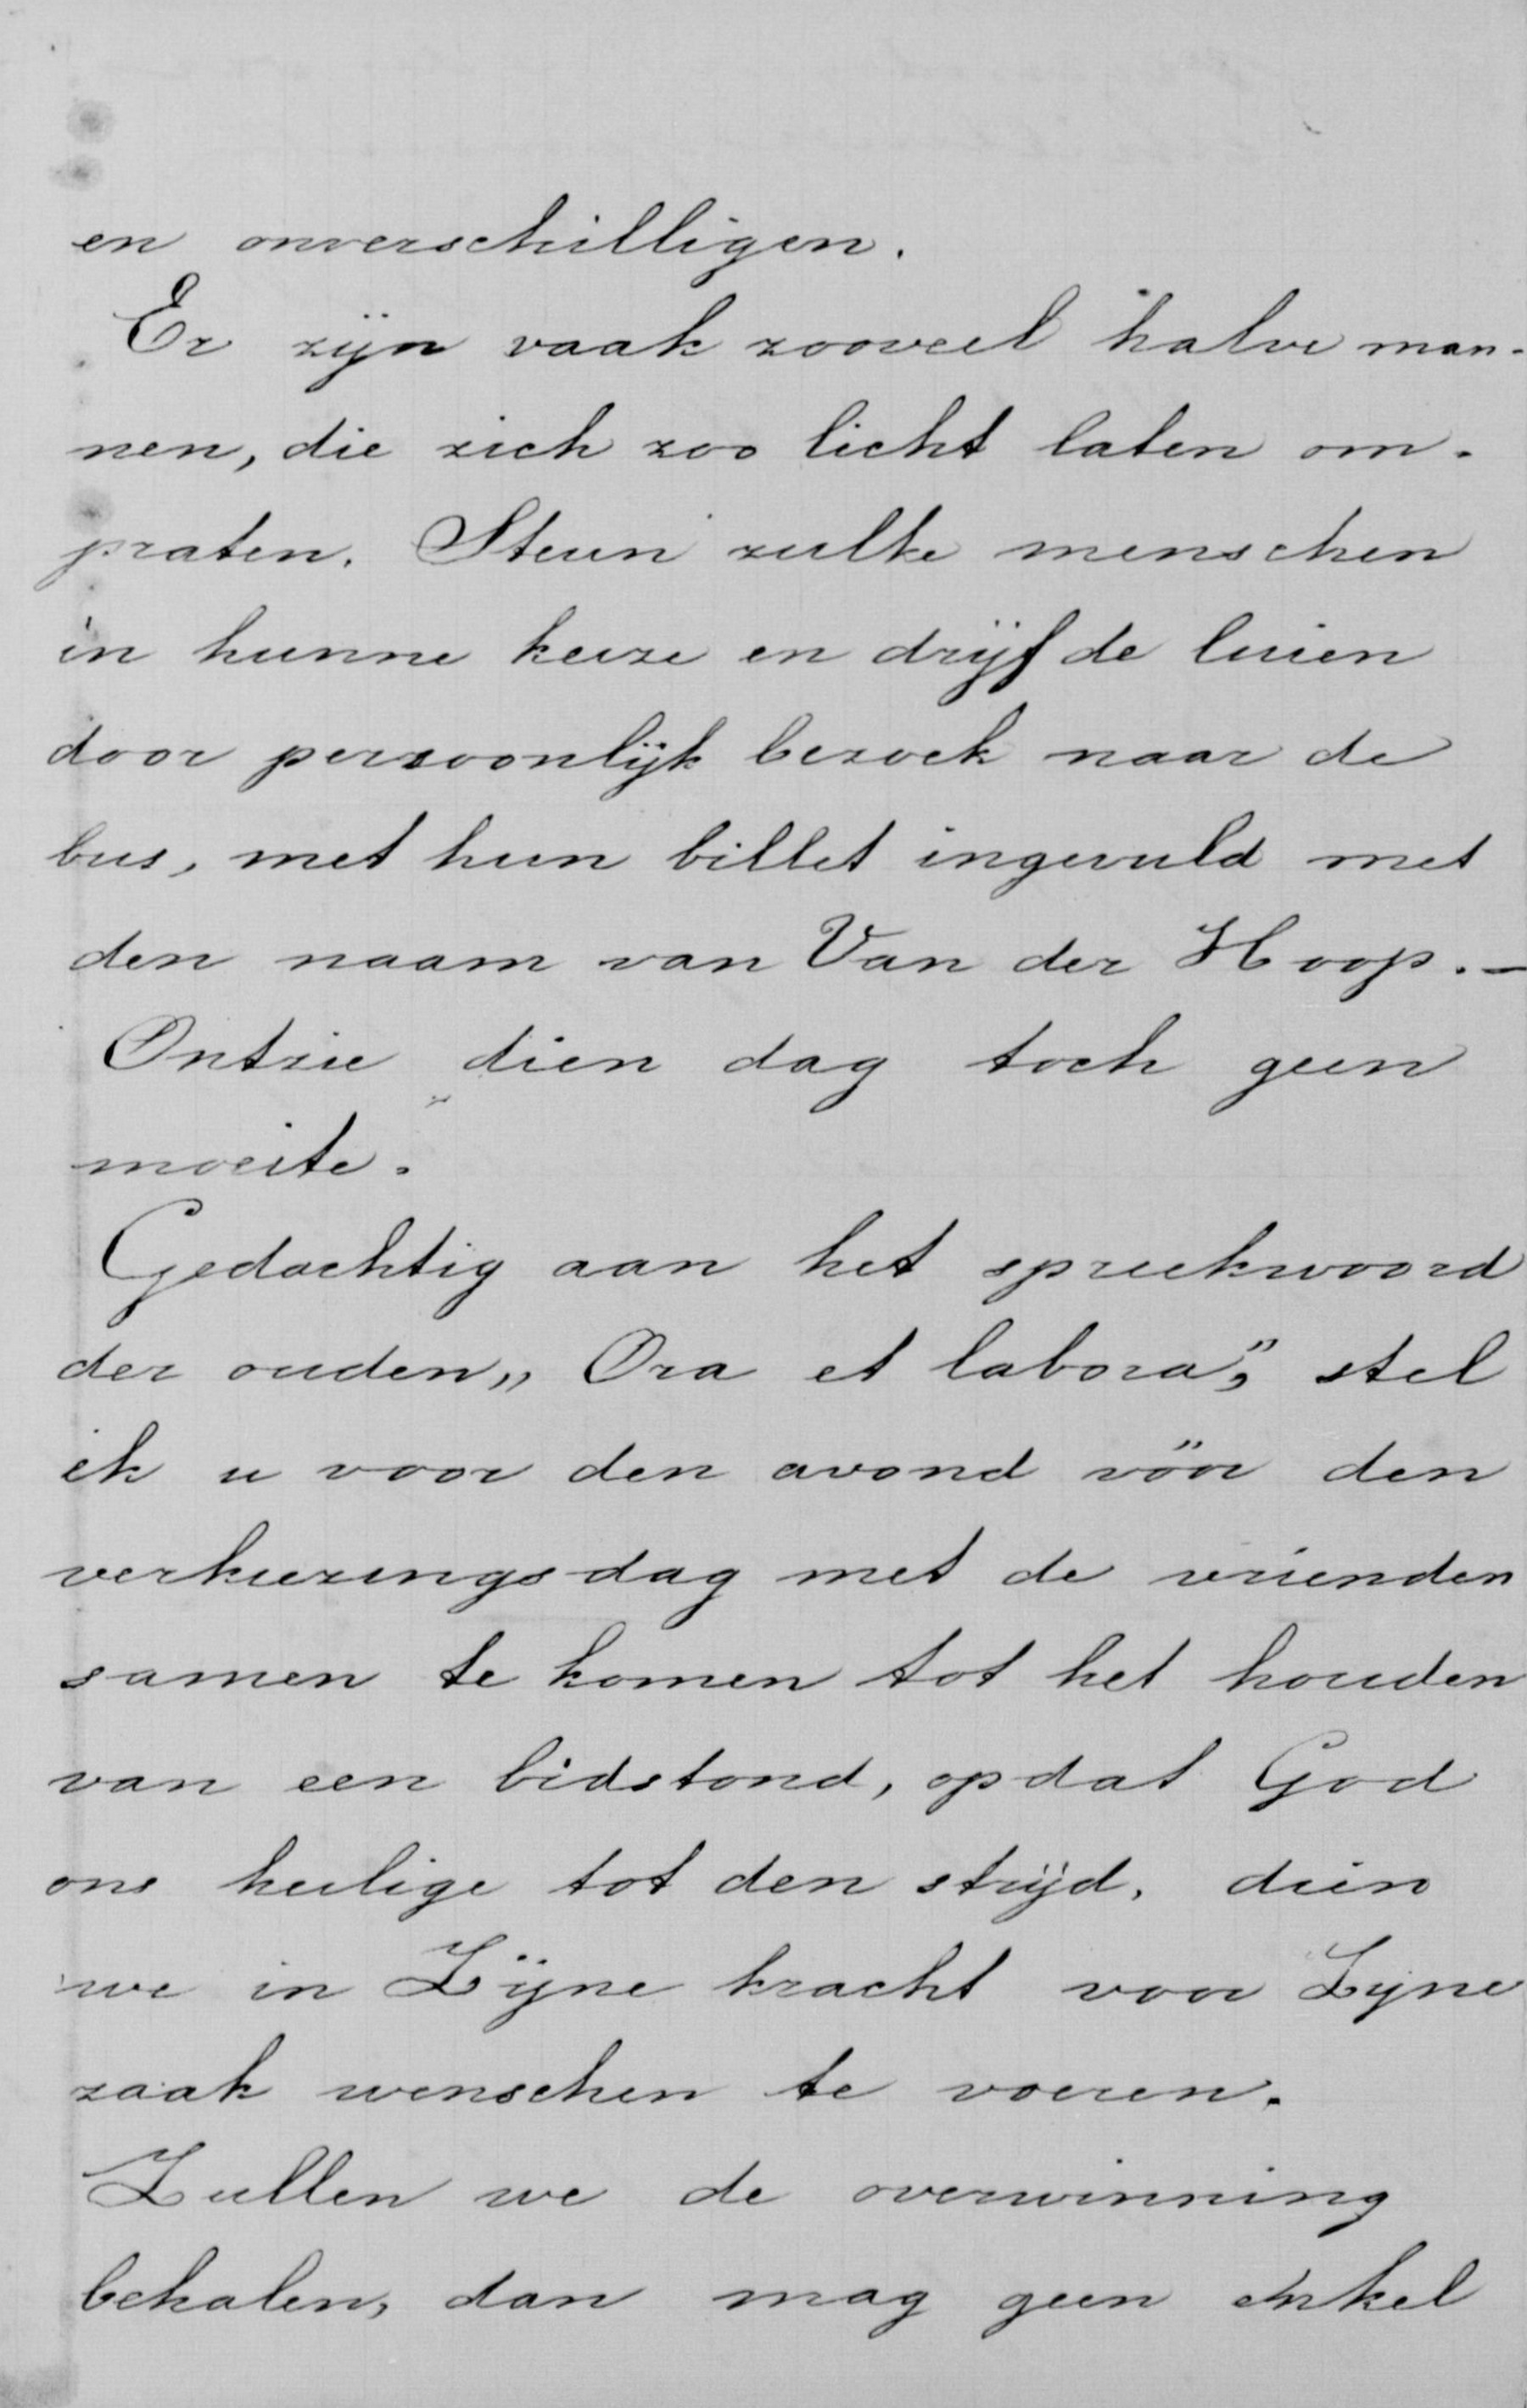 en onverschilligen.
Er zijn vaak zooveel halve man-
nen, die zich zoo licht laten om-
praten. Steun zulke menschen
in hunne keuze en drijf de luien
door persoonlijk bezoek naar de
bus, met hun billet ingevuld met
den naam van Van der Hoop. —
Ontzie dien dag toch geen
moeite.
Gedachtig aan het spreekwoord
der ouden „Ora et labora”, stel
ik u voor den avond vóór den
verkiezingsdag met de vrienden
samen te komen tot het houden
van een bidstond, opdat God
ons heilige tot den strijd, dien
we in Zijne kracht voor Zijne
zaak wenschen te voeren.
Zullen we de overwinning
behalen, dan mag geen enkel